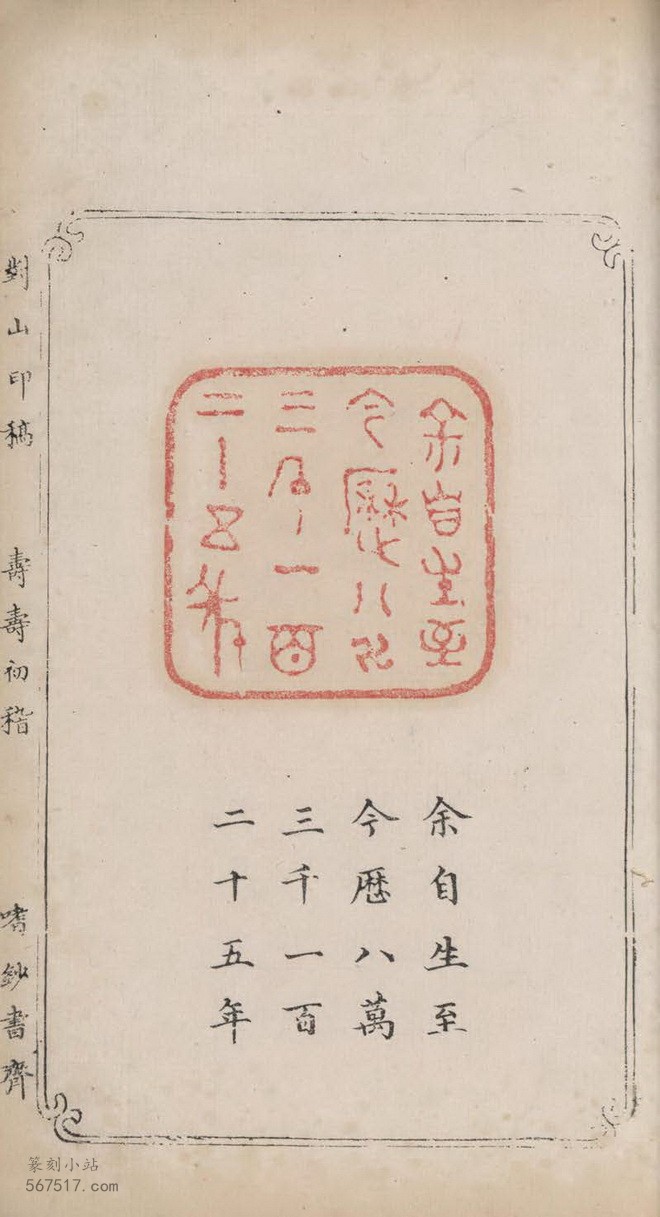 余自生至
今歷八萬
三千一百
二十五年
余自生至
今歷八萬
三千一百
二十五年
山印稿
壽壽初稽
嗜鈔書齋
篆刻小站
567517.com